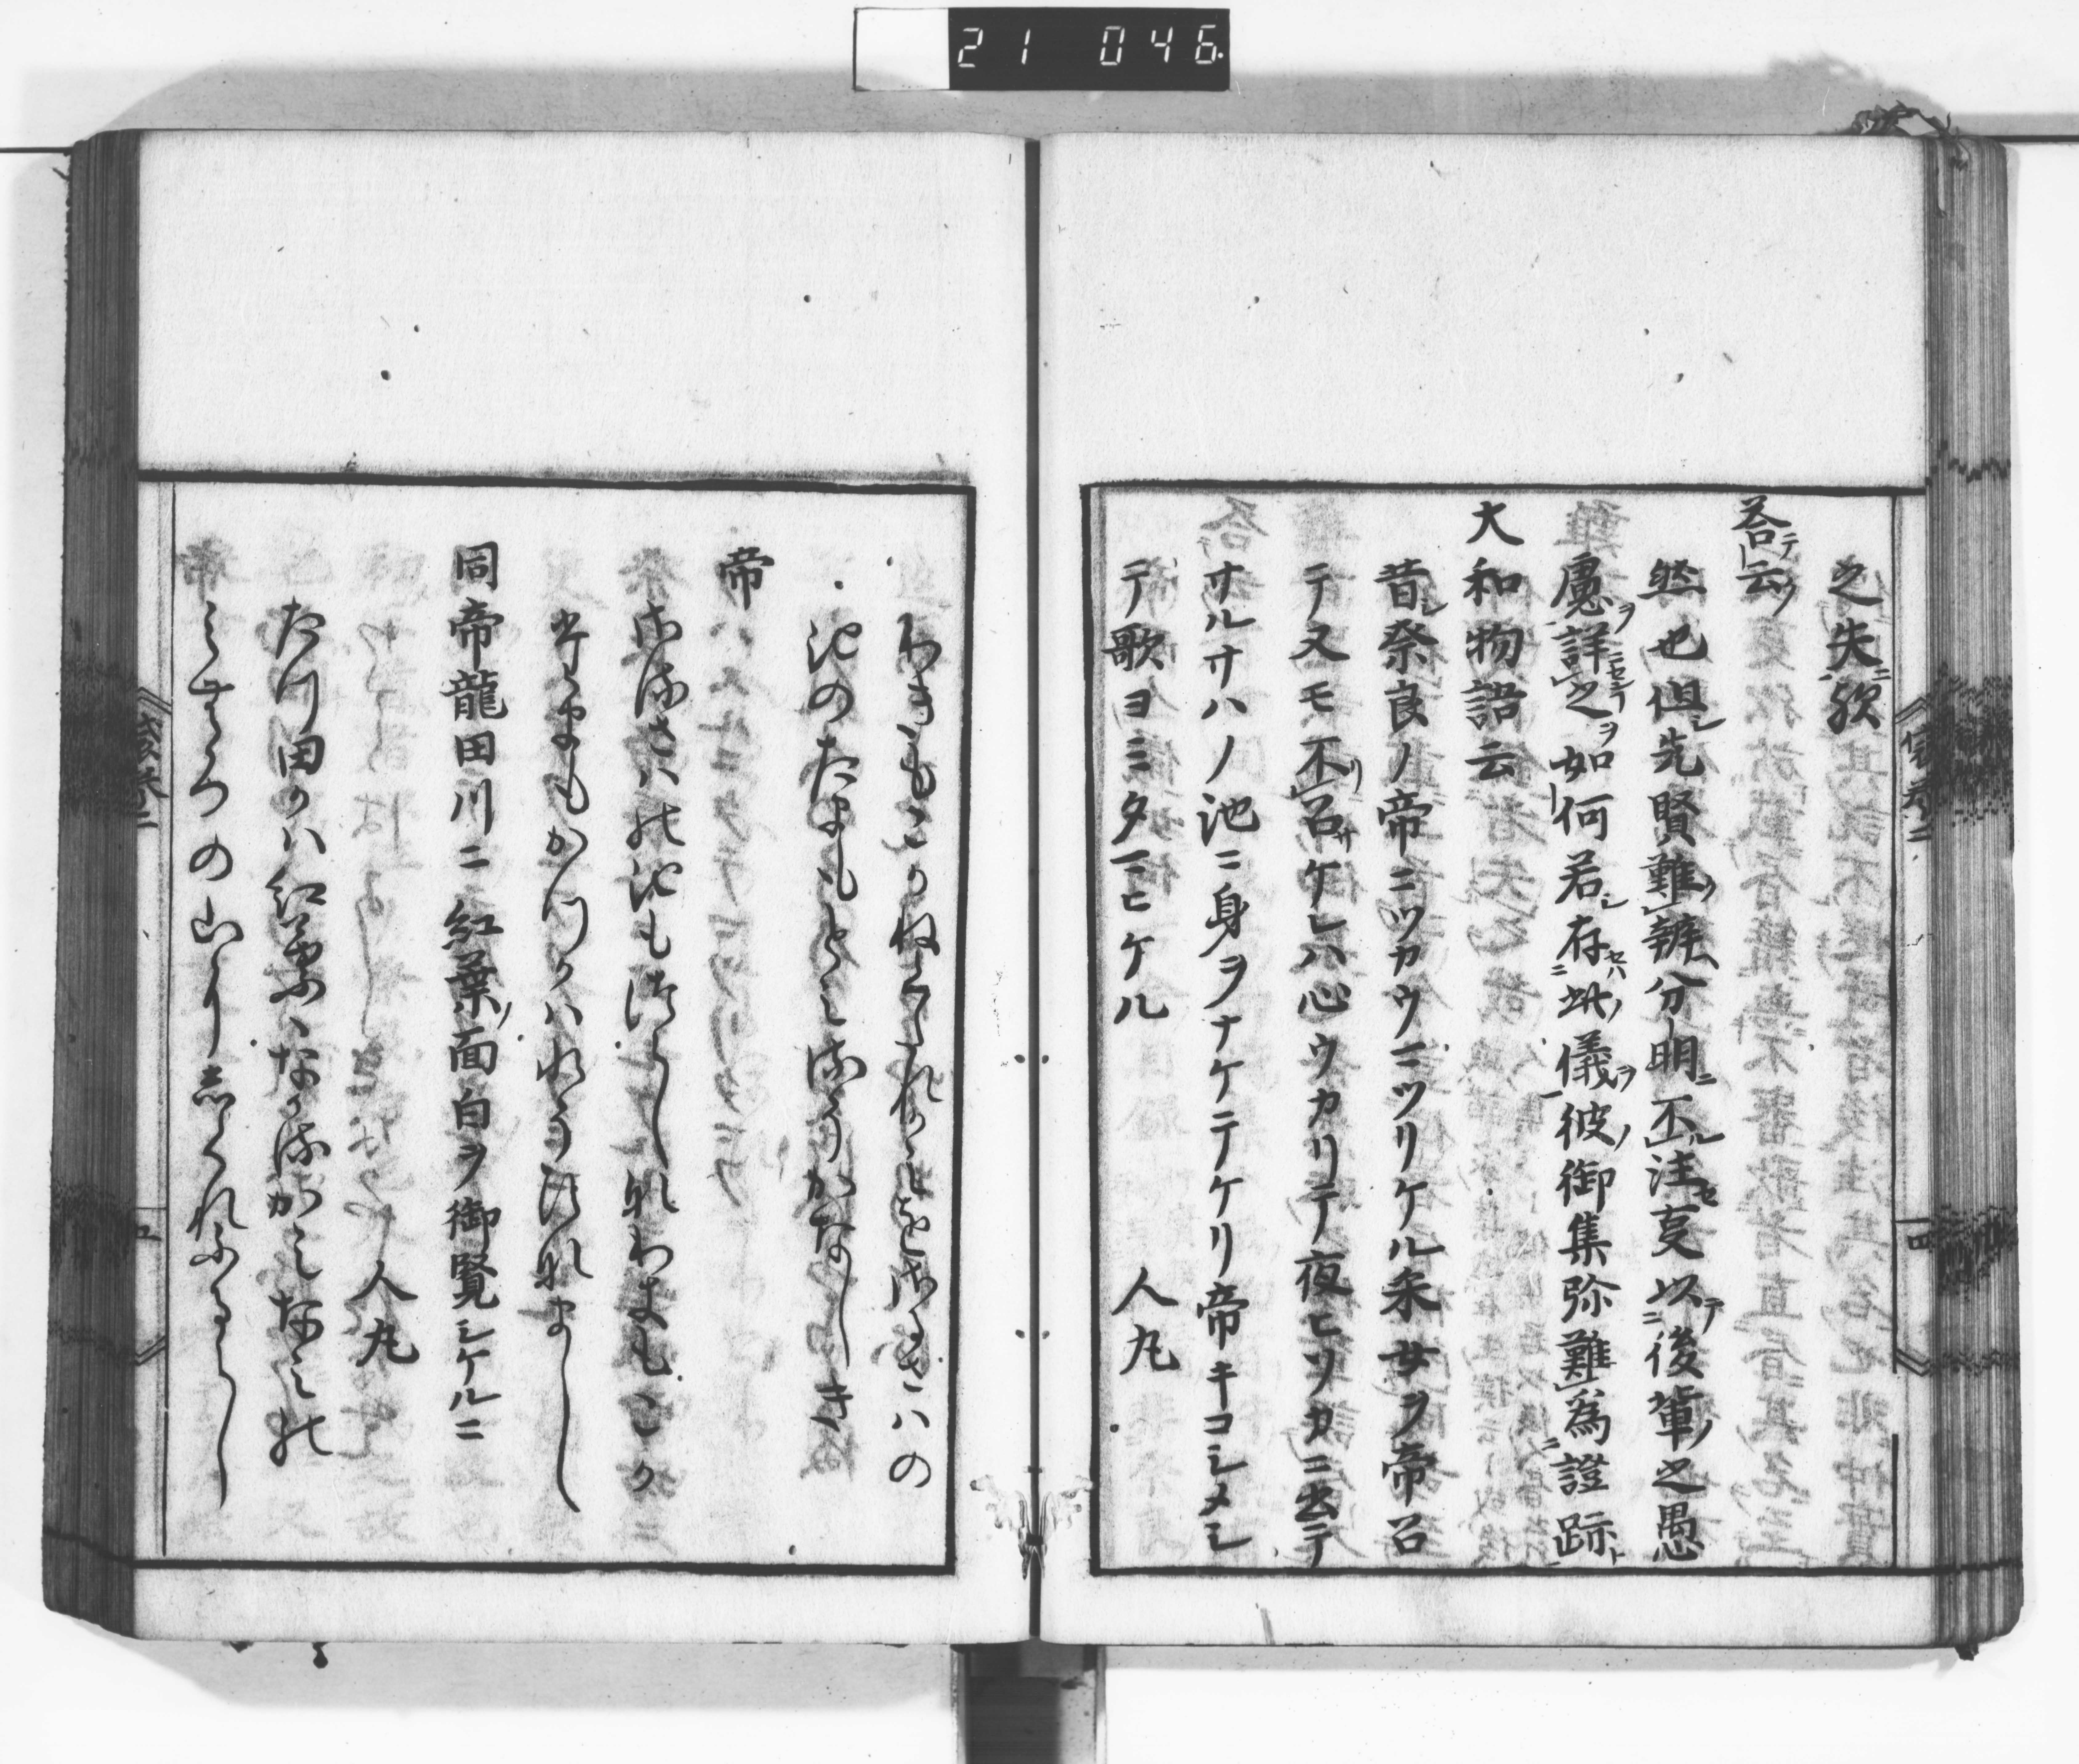 21 046
之失欤
荅云
然也但先賢難辨分明不注㝡以後輩之愚
慮詳之如何若存此儀彼御集弥難為證跡
大和物語云
昔奈良ノ帝ニツカウマツリケル采女ヲ帝召
テ又モ不召ケレハ心ウカリテ夜ヒソカニ出テ
サルサハノ池ニ身ヲナケテケリ帝キコシメシ
テ歌ヨミタマヒケル 人丸
わきもこかねくたれかみをさるさはの
池のたまもとみるそかなしき
帝
さるさはの池もつらしなわきもこか
たまもかつかはみつそひなまし
同帝龍田川ニ紅葉面白ヲ御覧シケルニ
人丸
たつ田かは紅葉はなかるかみなみの
みむろの山にしくれふるらし